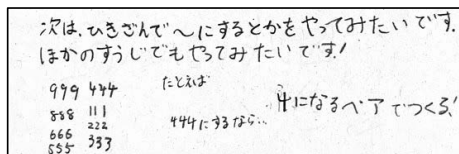 次は、ひきざんで〜にするとかをやってみたいです。
ほかのすうじでもやってみたいです!
999 444
888 111
666 222
555 333
たとえば
444にするなら…
4になるペアでつくる!